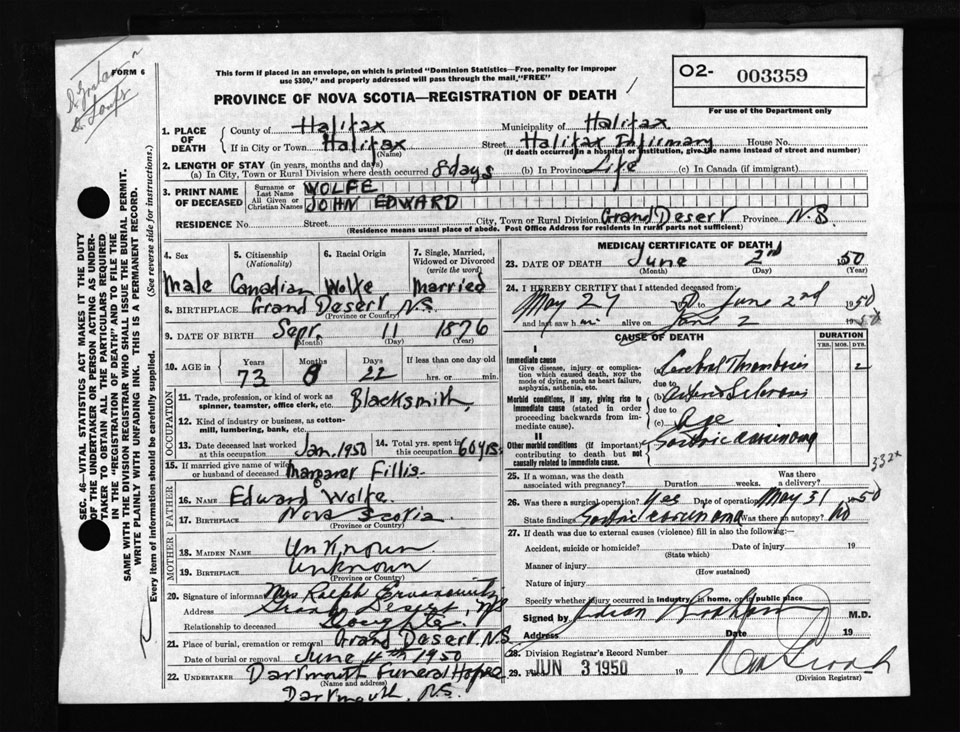 FORM 6
This form if placed in an envelope, on which is printed "Dominion Statistics—Free, penalty for improper
use $300," and properly addressed will pass through the mail, "FREE"
O2- 003359
For use of the Department only
PROVINCE OF NOVA SCOTIA—REGISTRATION OF DEATH
SEC. 46—VITAL STATISTICS ACT MAKES IT THE DUTY
OF THE UNDERTAKER OR PERSON ACTING AS UNDER-
TAKER TO OBTAIN ALL THE PARTICULARS REQUIRED
IN THE "REGISTRATION OF DEATH" AND TO FILE THE
SAME WITH THE DIVISION REGISTRAR WHO SHALL ISSUE THE BURIAL PERMIT.
WRITE PLAINLY WITH UNFADING INK. THIS IS A PERMANENT RECORD.
Every item of information should be carefully supplied. (See reverse side for instructions.)
1. PLACE OF DEATH County of Halifax Municipality of Halifax
If in City or Town Halifax (Name) Street Halifax Infirmary House No.
(If death occurred in a hospital or institution, give the name instead of street and number)
2. LENGTH OF STAY (in years, months and days)
(a) In City, Town or Rural Division where death occurred 8 days (b) In Province Life (c) In Canada (if immigrant)
3. PRINT NAME OF DECEASED Surname or Last Name WOLFE
All Given or Christian Names JOHN EDWARD
RESIDENCE No. Street City, Town or Rural Division Grand Desert Province N.S
(Residence means usual place of abode. Post Office Address for residents in rural parts not sufficient)
4. Sex 5. Citizenship (Nationality) 6. Racial Origin 7. Single, Married, Widowed or Divorced (write the word)
Male Canadian Wolfe Married
8. BIRTHPLACE Grand Desert N.S.
(Province or Country)
9. DATE OF BIRTH Sept 11 1876
(Month) (Day) (Year)
10. AGE in Years Months Days If less than one day old
73 8 22 hrs. or min.
OCCUPATION
11. Trade, profession, or kind of work as spinner, teamster, office clerk, etc. Blacksmith
12. Kind of industry or business, as cotton-mill, lumbering, bank, etc.
13. Date deceased last worked at this occupation Jan. 1950 14. Total yrs. spent in this occupation 60 yrs.
15. If married give name of wife or husband of deceased Margaret Fillis
FATHER
16. NAME Edward Wolfe.
17. BIRTHPLACE Nova Scotia
(Province or Country)
MOTHER
18. MAIDEN NAME Unknown
19. BIRTHPLACE Unknown
(Province or Country)
20. Signature of informant Mrs Ralph
Address Grand Desert, NS
Relationship to deceased Daughter
21. Place of burial, cremation or removal Grand Desert N.S
Date of burial or removal June 4th 1950
22. UNDERTAKER Dartmouth Funeral Home
(Name and address)
Dartmouth, N.S.
MEDICAL CERTIFICATE OF DEATH
23. DATE OF DEATH June 2nd 1950
(Month) (Day) (Year)
24. I HEREBY CERTIFY that I attended deceased from:
May 27 50 to June 2nd 1950
and last saw him alive on June 2 1950
CAUSE OF DEATH DURATION
YRS. MOS. DYS.
I
Immediate cause
Give disease, injury or complication which caused death, not the mode of dying, such as heart failure, asphyxia, asthenia, etc.
(a) Cerebral Thrombosis 2
due to
Morbid conditions, if any, giving rise to immediate cause (stated in order proceeding backwards from immediate cause).
(b) Arterio Sclerosis
due to
(c) Age
II
Other morbid conditions (if important) contributing to death but not causally related to immediate cause.
Gastric carcinoma
332x
25. If a woman, was the death associated with pregnancy? Duration weeks. Was there a delivery?
26. Was there a surgical operation? Yes Date of operation May 31 1950
State findings Gastric carcinoma Was there an autopsy? no
27. If death was due to external causes (violence) fill in also the following:—
Accident, suicide or homicide? Date of injury 19
(State which)
Manner of injury
(How sustained)
Nature of injury
Specify whether injury occurred in industry, in home, or in public place
Signed by M.D.
Address Date 19
28. Division Registrar's Record Number
29. Filed JUN 3 1950 19
(Division Registrar)